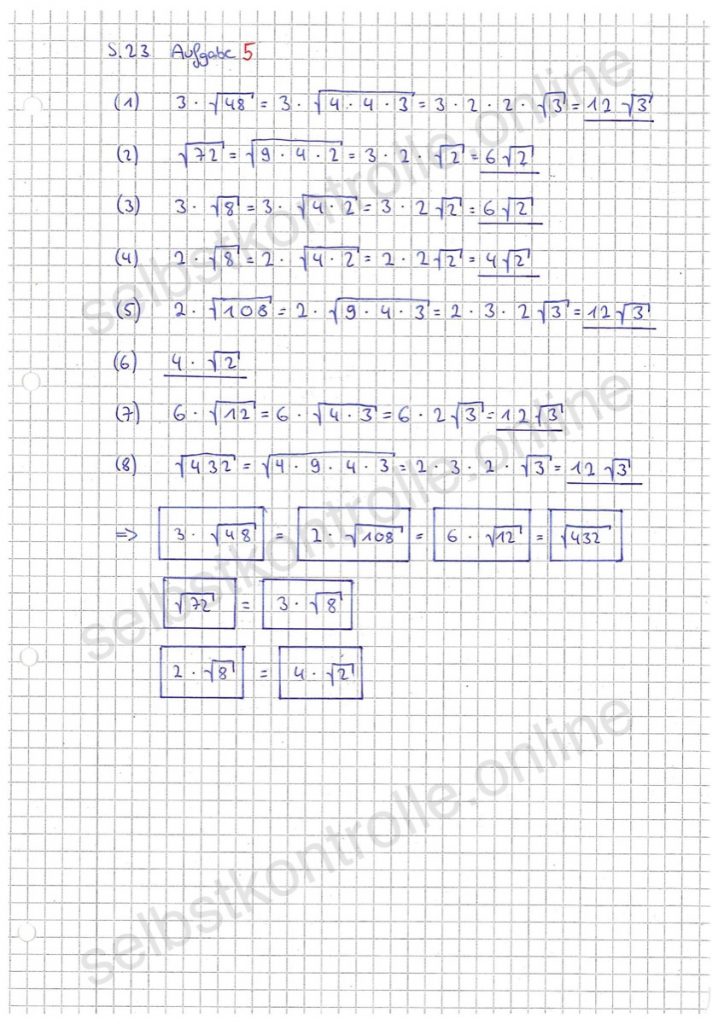 S.23 Aufgabe 5
(1) 3 · √48 = 3 · √(4 · 4 · 3) = 3 · 2 · 2 · √3 = 12 √3
(2) √72 = √(9 · 4 · 2) = 3 · 2 · √2 = 6 √2
(3) 3 · √8 = 3 · √(4 · 2) = 3 · 2 √2 = 6 √2
(4) 2 · √8 = 2 · √(4 · 2) = 2 · 2 √2 = 4 √2
(5) 2 · √108 = 2 · √(9 · 4 · 3) = 2 · 3 · 2 √3 = 12 √3
(6) 4 · √2
(7) 6 · √12 = 6 · √(4 · 3) = 6 · 2 √3 = 12 √3
(8) √432 = √(4 · 9 · 4 · 3) = 2 · 3 · 2 · √3 = 12 √3
=> 3 · √48 = 2 · √108 = 6 · √12 = √432
√72 = 3 · √8
2 · √8 = 4 · √2
selbstkontrolle.online
selbstkontrolle.online
selbstkontrolle.online